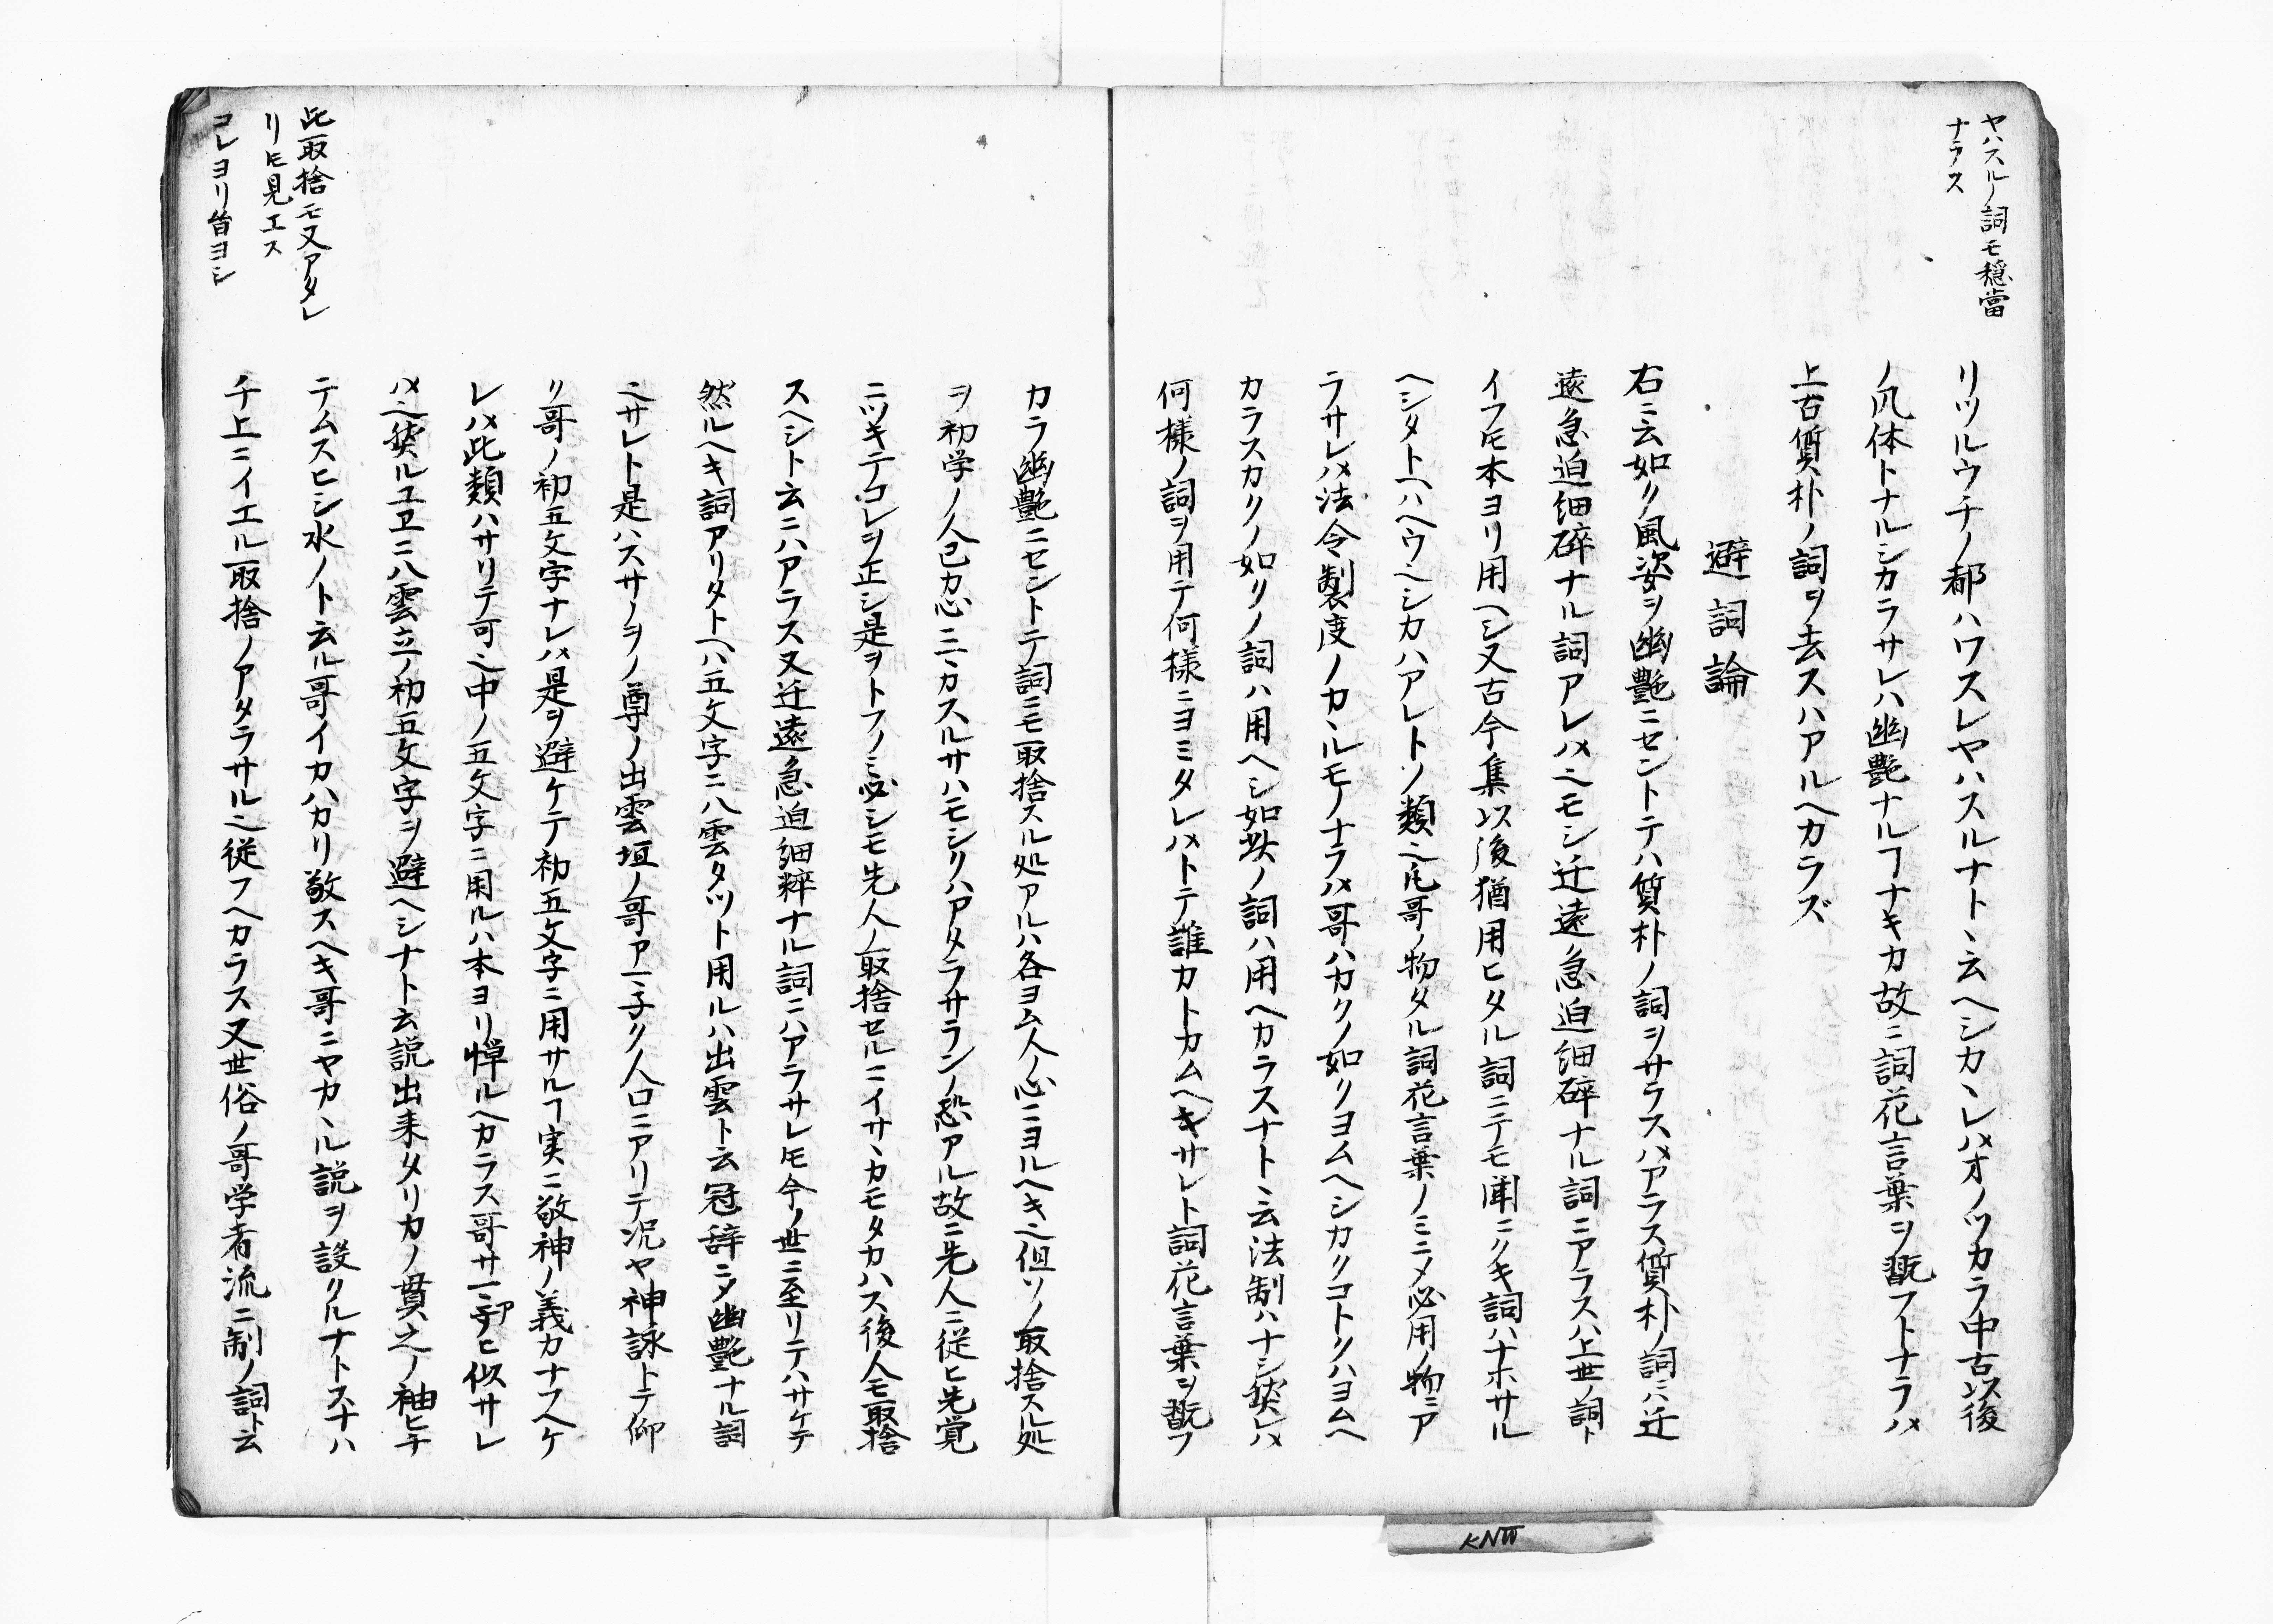 ヤハスルノ詞モ穏當
ナラス
リツルウチノ都ハワスレヤハスルナトヽ云ヘシカヽレハオノツカラ中古以後
ノ風体トナルシカラサレハ幽艶ナルヿナキカ故ニ詞花言葉ヲ翫フトナラハ
上古質朴ノ詞ヲ去スハアルヘカラズ
避詞論
右ニ云如ク風姿ヲ幽艶ニセントテハ質朴ノ詞ヲサラスハアラス質朴ノ詞ニハ迂
遠急迫細碎ナル詞アレハ也モシ迂遠急迫細碎ナル詞ニアラスハ上世ノ詞ト
イフ𪜈本ヨリ用ヘシ又古今集以後猶用ヒタル詞ニテモ聞ニクキ詞ハナホサル
ヘシタトヘハヘウヘシカハアレトノ類也𪜈哥ノ物タル詞花言葉ノミニメ必用ノ物ニア
ラサレハ法令製度ノカヽルモノナラハ哥ハカクノ如クヨムヘシカクコトクハヨムヘ
カラスカクノ如クノ詞ハ用ヘシ如此ノ詞ハ用ヘカラスナトヽ云法制ハナシ然レハ
何様ノ詞ヲ用テ何様ニヨミタレハトテ誰カトカムヘキサレト詞花言葉ヲ翫フ
カラ幽艶ニセントテ詞ニモ取捨スル処アルハ各ヨム人ノ心ニヨルヘキ也但ソノ取捨スル処
ヲ初学ノ人己カ心ニマカスルサハモシクハアタラサランノ恐アル故ニ先人ニ従ヒ先覚
ニツキテコレヲ正シ是ヲトフノミ必シモ先人ノ取捨セルニイサヽカモタカハス後人モ取捨
スヘシト云ニハアラス又迂遠急迫細粹ナル詞ニハアラサレ𪜈今ノ世ニ至リテハサケテ
然ルヘキ詞アリタトヘハ五文字ニ八雲タツト用ルハ出雲ト云冠辞ニメ幽艶ナル詞
也サレト是ハスサノヲノ尊ノ出雲垣ノ哥アマ子ク人口ニアリテ况ヤ神詠トテ仰
ク哥ノ初五文字ナレハ是ヲ避ケテ初五文字ニ用サルヿ実ニ敬神ノ義カナフヘケ
レハ此類ハサリテ可也中ノ五文字ニ用ルハ本ヨリ憚ルヘカラス哥サマ詞ヒ似サレ
ハ也然ルユヱニ八雲立ノ初五文字ヲ避ヘシナト云説出来タリカノ貫之ノ袖ヒチ
テムスヒシ水ノト云ル哥イカハカリ敬スヘキ哥ニヤカヽル説ヲ設クルナトスナハ
チ上ニイエル取捨ノアタラサル也従フヘカラス又世俗ノ哥学者流ニ制ノ詞ト云
此取捨モ又アタレ
リ𪜈見エス
コレヨリ皆ヨシ
KNW